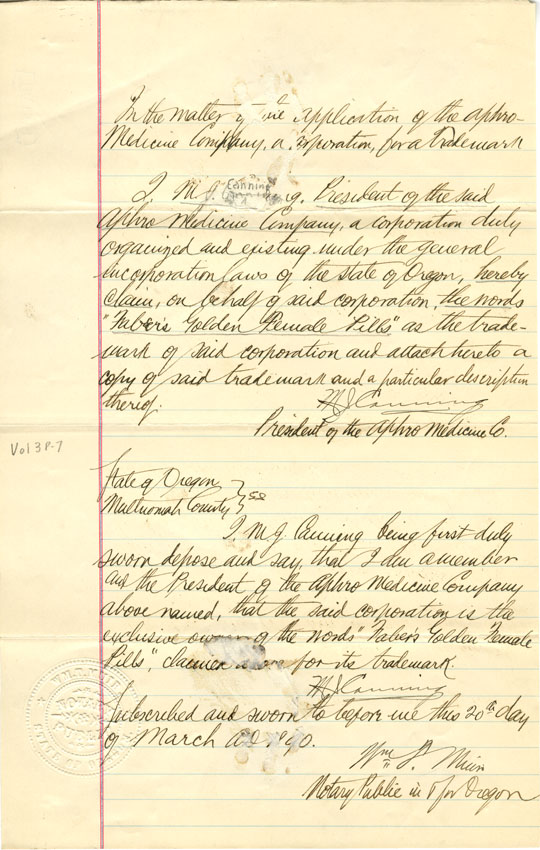 In the matter of the Application of the Aphro-
Medicine Company, a corporation, for a trademark
I, M. J. Canning, President of the said
Aphro Medicine Company, a corporation duly
organized and existing under the general
incorporation laws of the state of Oregon, hereby
claim, on behalf of said corporation, the words
"Faber's Golden Female Pills" as the trade-
mark of said corporation and attach hereto a
copy of said trademark and a particular description
thereof.
M J Canning
President of the Aphro Medicine Co.
Vol 3 P-7
State of Oregon
Multnomah County } ss
I, M. J. Canning being first duly
sworn depose and say, that I am a member
and the President of the Aphro Medicine Company
above named, that the said corporation is the
exclusive owner of the words "Faber's Golden Female
Pills", claimed above for its trademark.
M J Canning
Subscribed and sworn to before me this 20th day
of March AD 1890.
Wm
Notary Public in & for Oregon